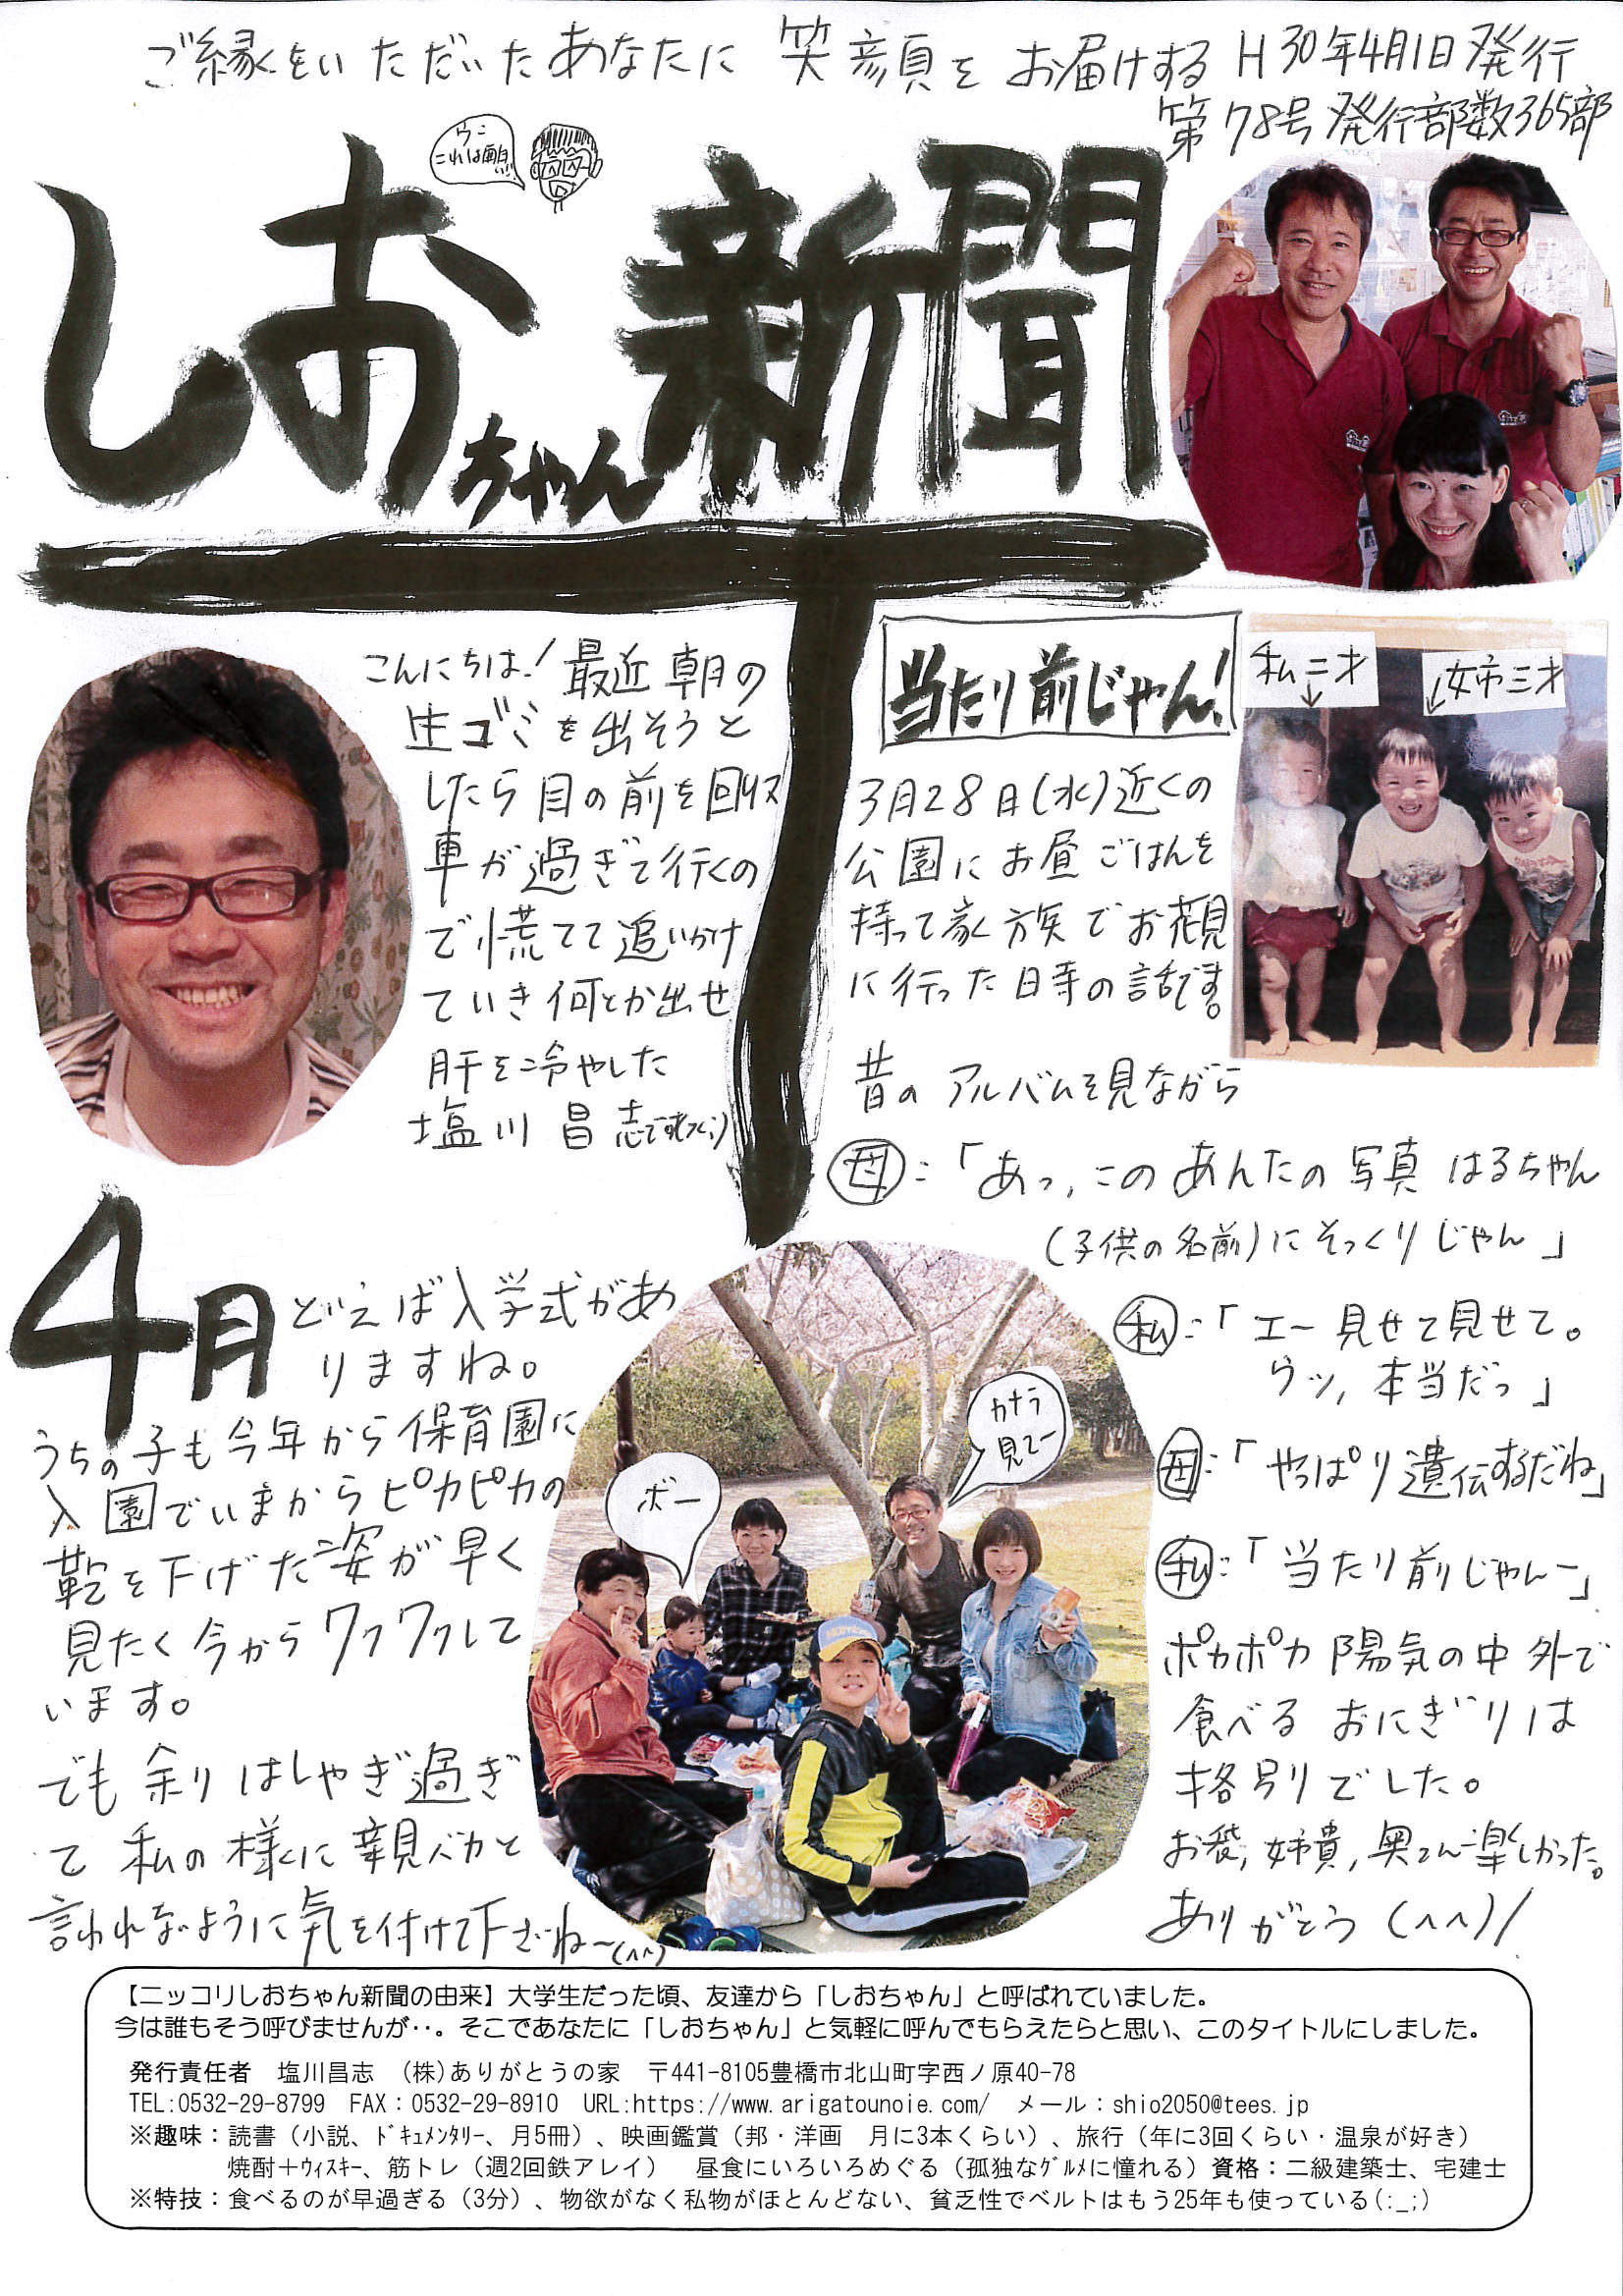 ご縁をいただいたあなたに笑顔をお届けする H30年4月1日発行
第78号発行部数365部
これは面白い!!
しおちゃん新聞
こんにちは!最近朝の
生ゴミを出そうと
したら目の前を回収
車が過ぎて行くの
で慌てて追いかけ
ていき何とか出せ
肝を冷やした
塩川昌志です(^_^;)
当たり前じゃん!
私二才
姉三才
3月28日(水)近くの
公園にお昼ごはんを
持って家族でお花見
に行った時の話です。
昔のアルバムを見ながら
母:「あっ,このあんたの写真はるちゃん
(子供の名前)にそっくりじゃん」
私:「エー見せて見せて。
ウッ,本当だっ」
母:「やっぱり遺伝するだね」
私:「当たり前じゃんー」
ポカポカ陽気の中外で
食べるおにぎりは
格別でした。
お袋,姉貴,奥さん楽しかった。
ありがとう(^^)/
4月といえば入学式があ
りますね。
うちの子も今年から保育園に
入園でいまからピカピカの
鞄を下げた姿が早く
見たく今からワクワクして
います。
でも余りはしゃぎ過ぎ
て私の様に親バカと
言われないように気を付けて下さいね〜(^^)
ボー
カメラ
見てー
【ニッコリしおちゃん新聞の由来】大学生だった頃、友達から「しおちゃん」と呼ばれていました。
今は誰もそう呼びませんが‥。そこであなたに「しおちゃん」と気軽に呼んでもらえたらと思い、このタイトルにしました。
発行責任者　塩川昌志　(株)ありがとうの家　〒441-8105豊橋市北山町字西ノ原40-78
TEL:0532-29-8799　FAX:0532-29-8910　URL:https://www.arigatounoie.com/　メール:shio2050@tees.jp
※趣味:読書（小説、ﾄﾞｷｭﾒﾝﾀﾘｰ、月5冊）、映画鑑賞（邦・洋画　月に3本くらい）、旅行（年に3回くらい・温泉が好き）
焼酎＋ｳｨｽｷｰ、筋トレ（週2回鉄アレイ）　昼食にいろいろめぐる（孤独なｸﾞﾙﾒに憧れる）資格:二級建築士、宅建士
※特技:食べるのが早過ぎる（3分）、物欲がなく私物がほとんどない、貧乏性でベルトはもう25年も使っている(:_;)